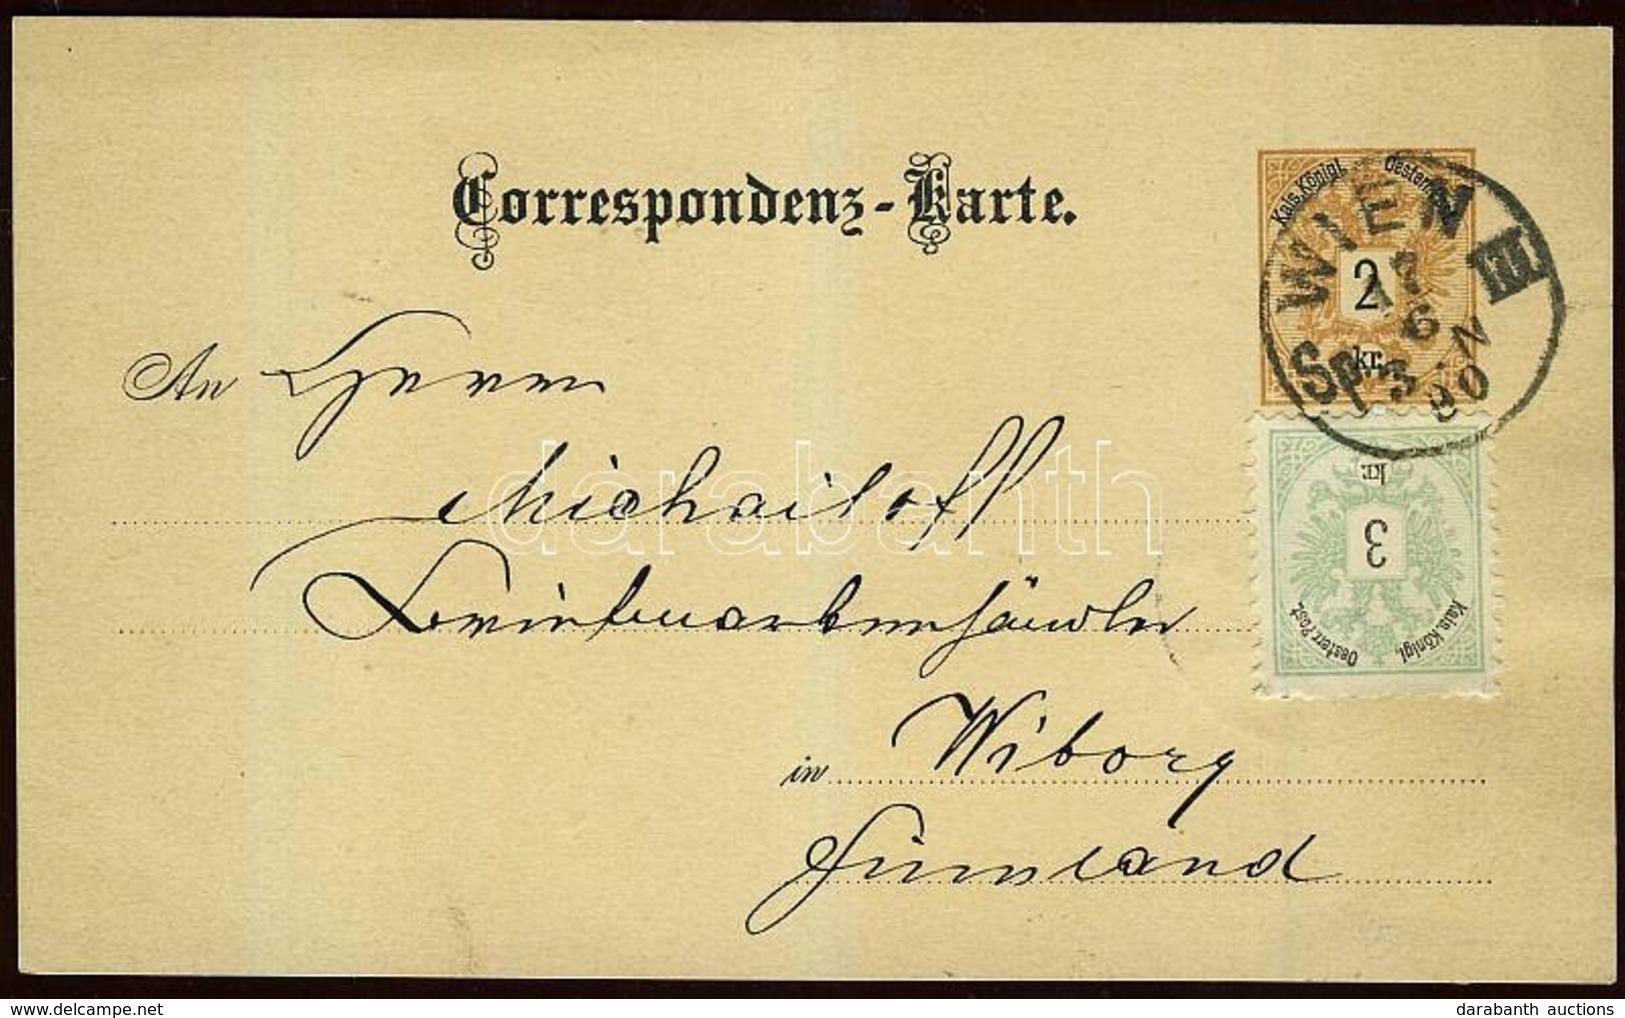 Correspondenz-Karte.
Kais. Königl. Oesterr.
2
kr.
WIEN III
17
6
3-N
90
An Herrn
Michailoff
Briefmarkenhändler
in Wiborg
Finnland
kr.
3
Kais. Königl. Oesterr. Post.
darabanth
darabanth auctions